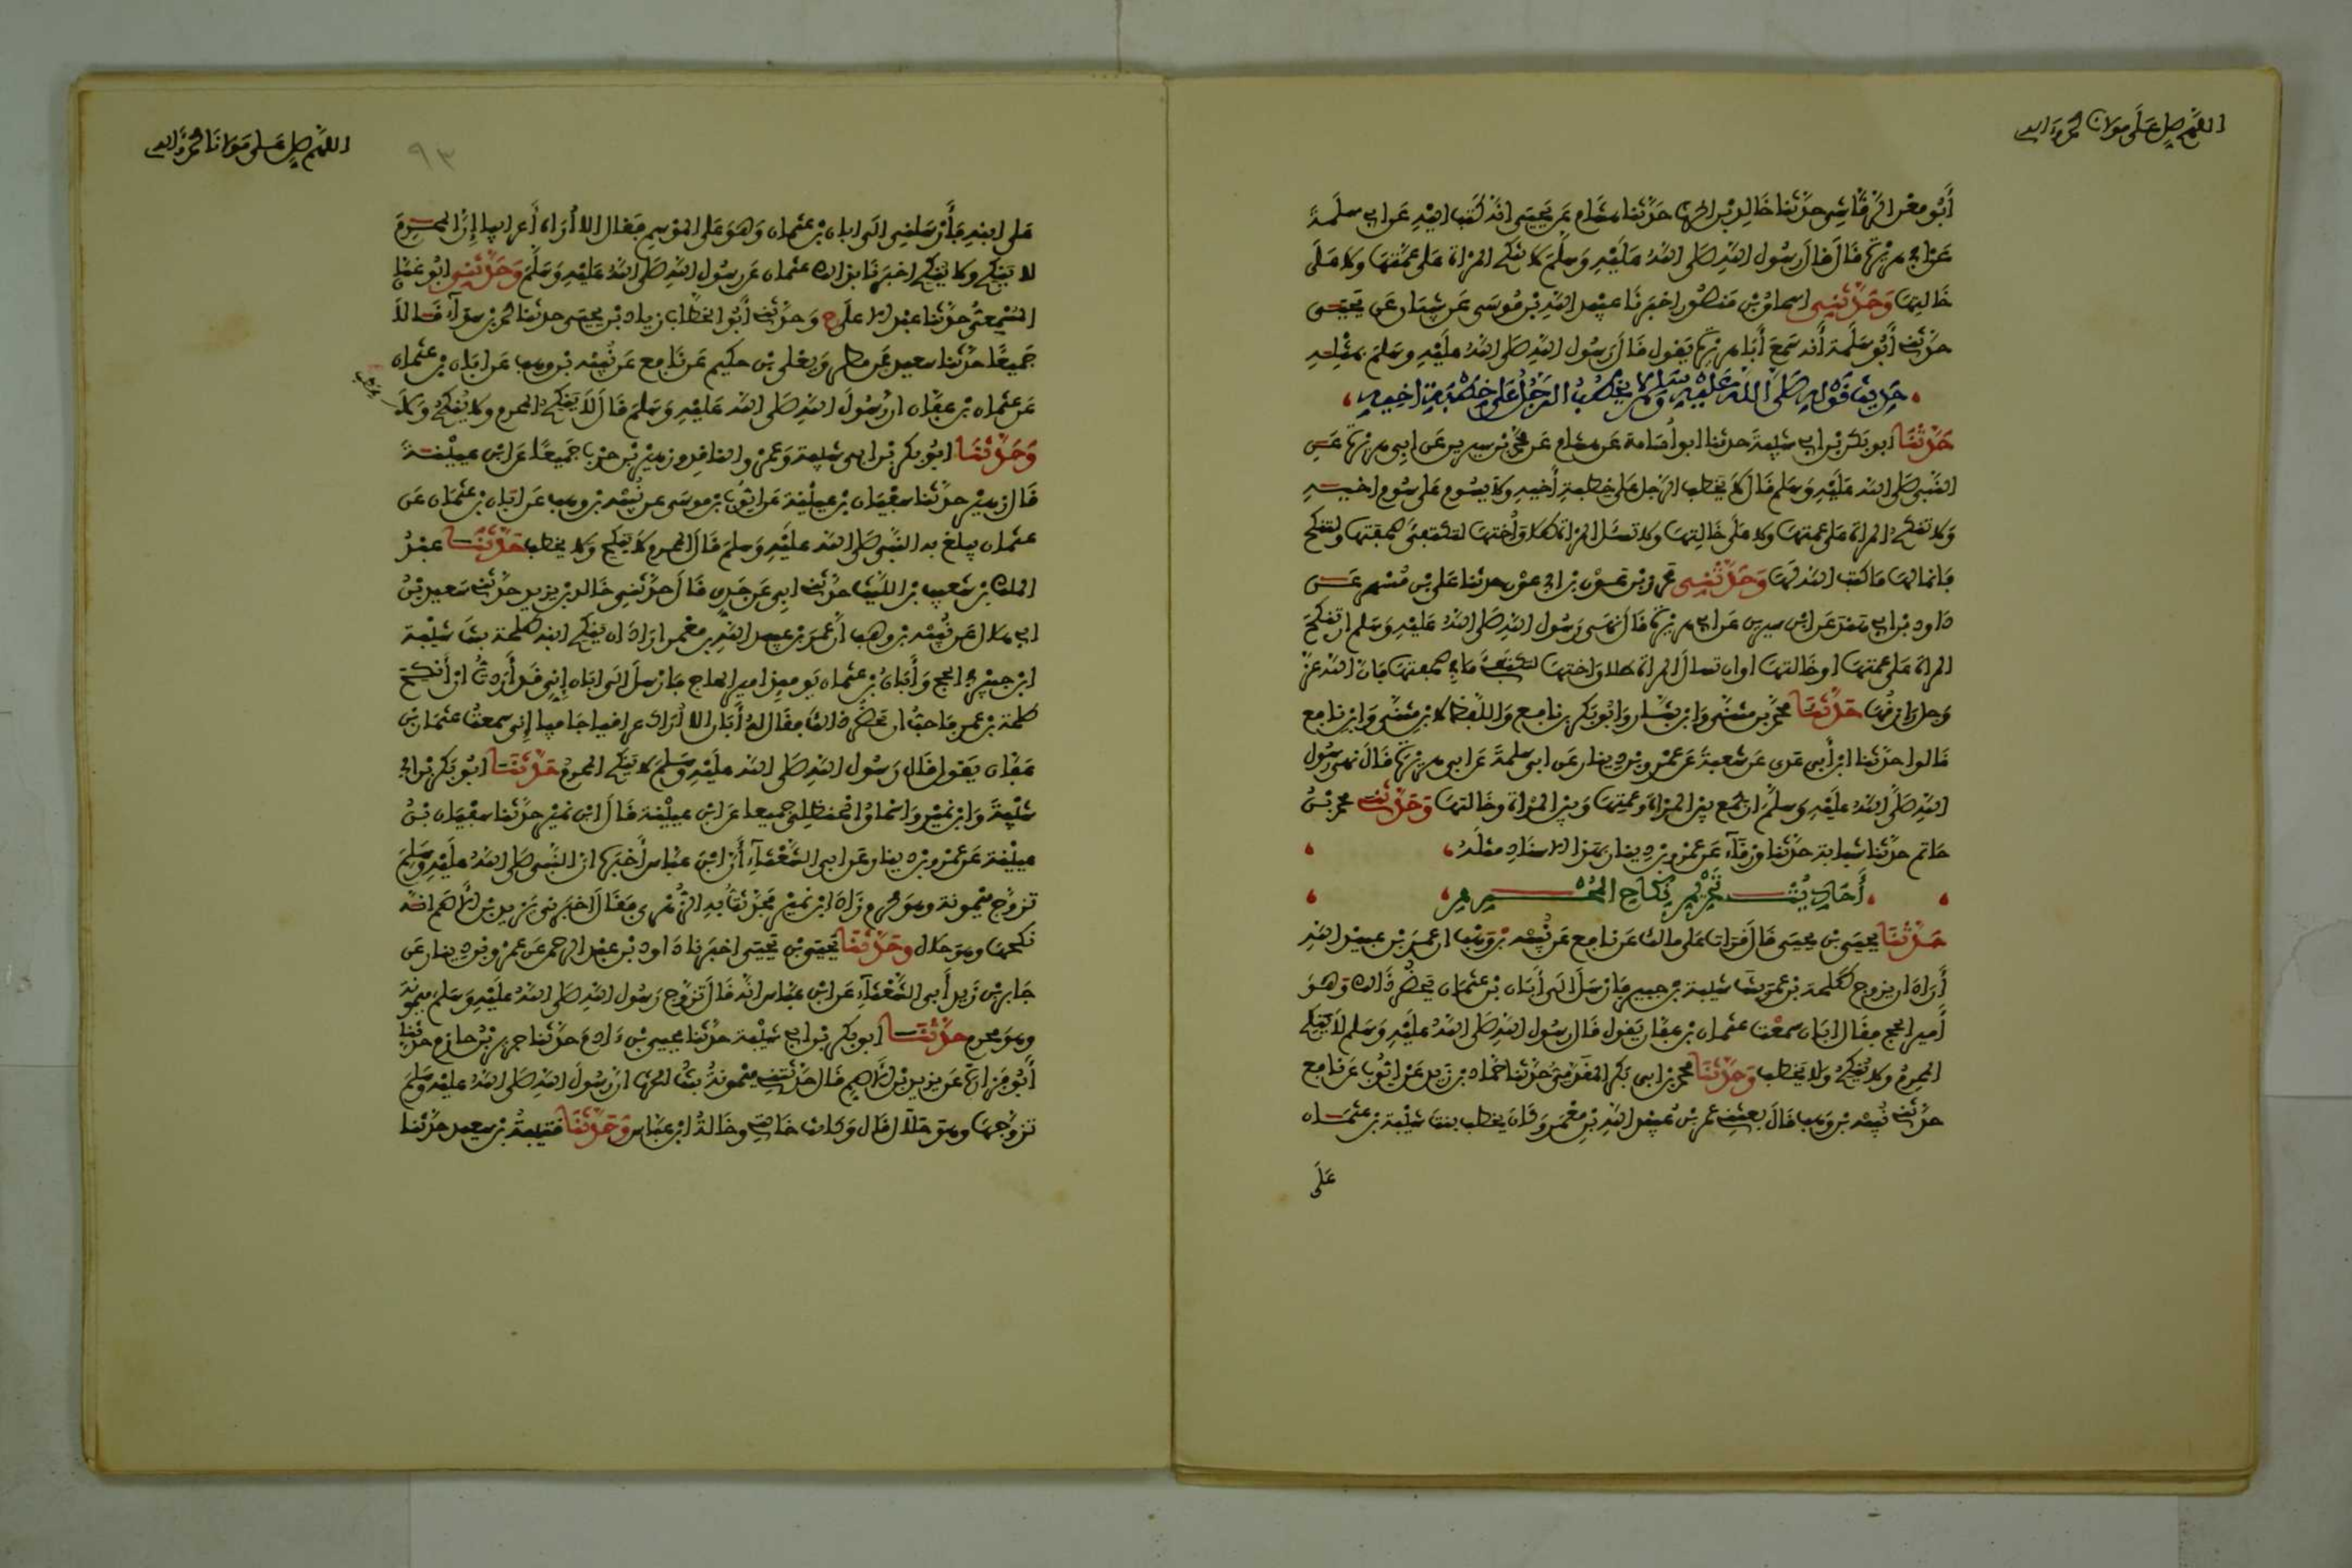 اللهم صل على مولانا محمد وآله
أبو معن الرقاشي حدثنا خالد بن الحرث حدثنا هشام عن يحيى انه كتب اليه عن ابي سلمة
عن ابي هريرة قال قال رسول الله صلى الله عليه وسلم لا تنكح المراة على عمتها ولا على
خالتها وحدثني اسحاق بن منصور اخبرنا عبيد الله بن موسى عن شيبان عن يحيى
حدثني أبو سلمة أنه سمع أبا هريرة يقول قال رسول الله صلى الله عليه وسلم بمثله
حديث قوله صلى الله عليه وسلم لا يخطب الرجل على خطبة اخيه
حدثنا ابو بكر بن ابي شيبة حدثنا ابو أسامة عن هشام عن محمد بن سيرين عن ابي هريرة عن
النبي صلى الله عليه وسلم قال لا يخطب الرجل على خطبة أخيه ولا يسوم على سوم اخيه
ولا تنكح المراة على عمتها ولا على خالتها ولا تسئل المراة طلاق أختها لتكتفئ صحفتها ولتنكح
فانما لها ما كتب الله لها وحدثني محرز بن عون بن ابي عون حدثنا علي بن مسهر عن
داود بن ابي هند عن ابن سيرين عن ابي هريرة قال نهى رسول الله صلى الله عليه وسلم ان تنكح
المراة على عمتها او خالتها او ان تسال المراة طلاق اختها لتكتفئ ما في صحفتها فان الله عز
وجل رازقها حدثنا محمد بن مثنى وابن بشار وابو بكر بن نافع واللفظ لابن مثنى وابن نافع
قالوا حدثنا ابن أبي عدي عن شعبة عن عمرو بن دينار عن ابي سلمة عن ابي هريرة قال نهى رسول
الله صلى الله عليه وسلم ان يجمع بين المراة وعمتها وبين المراة وخالتها وحدثني محمد بن
حاتم حدثنا شبابة حدثنا ورقآء عن عمرو بن دينار بهذا الاسناد مثله
أحاديث تحريم نكاح المحرم
حدثنا يحيى بن يحيى قال قرات على مالك عن نافع عن نبيه بن وهب ان عمر بن عبيد الله
أراد ان يزوج طلحة بن عمر بنت شيبة بن جبير فارسل الى أبان بن عثمان يحضر ذالك وهو
أمير الحج فقال ابان سمعت عثمان بن عفان يقول قال رسول الله صلى الله عليه وسلم لا ينكح
المحرم ولا ينكح ولا يخطب وحدثنا محمد بن ابي بكر المقدمي حدثنا حماد بن زيد عن ايوب عن نافع
حدثني نبيه بن وهب قال بعثني عمر بن عبيد الله بن معمر وكان يخطب بنت شيبة بن عثمان
على
اللهم صل على مولانا محمد وآله
٩٣
على ابنه فأرسلني الى ابان بن عثمان وهو على الموسم فقال الا أراه أعرابيا إن المحرم
لا ينكح ولا ينكح اخبرنا بذالك عثمان عن رسول الله صلى الله عليه وسلم وحدثني ابو غسان
المسمعي حدثنا عبد الاعلى ح وحدثني أبو الخطاب زياد بن يحيى حدثنا محمد بن سوآء قالا
جميعا حدثنا سعيد عن مطر ويعلى بن حكيم عن نافع عن نبيه بن وهب عن ابان بن عثمان
عن عثمان بن عفان ان رسول الله صلى الله عليه وسلم قال لا ينكح المحرم ولا ينكح ولا
يخطب
وحدثنا ابو بكر بن ابي شيبة وعمرو الناقد وزهير بن حرب جميعا عن ابن عيينة
قال زهير حدثنا سفيان بن عيينة عن ايوب بن موسى عن نبيه بن وهب عن ابان بن عثمان عن
عثمان يبلغ به النبي صلى الله عليه وسلم قال المحرم لا ينكح ولا يخطب حدثنا عبد
الملك بن شعيب بن الليث حدثني ابي عن جدي قال حدثني خالد بن يزيد حدثني سعيد بن
ابي هلال عن نبيه بن وهب أن عمر بن عبيد الله بن معمر اراد ان ينكح ابنه طلحة بنت شيبة
ابن جبير في الحج وأبان بن عثمان يومئذ امير الحاج فارسل الى ابان إني قد أردت ان أنكح
طلحة بن عمر فاحب ان تحضر ذالك فقال له أبان الا أراك عراقيا جافيا إني سمعت عثمان بن
عفان يقول قال رسول الله صلى الله عليه وسلم لا ينكح المحرم حدثنا ابو بكر بن ابي
شيبة وابن نمير واسحاق الحنظلي جميعا عن ابن عيينة قال ابن نمير حدثنا سفيان بن
عيينة عن عمرو بن دينار عن ابي الشعثآء أن ابن عباس أخبره ان النبي صلى الله عليه وسلم
تزوج ميمونة وهو محرم زاد ابن نمير فحدثت به الزهري فقال اخبرني يزيد بن الاصم انه
نكحها وهو حلال وحدثنا يحيى بن يحيى اخبرنا داود بن عبد الرحمن عن عمرو بن دينار عن
جابر بن زيد أبي الشعثآء عن ابن عباس انه قال تزوج رسول الله صلى الله عليه وسلم ميمونة
وهو محرم حدثنا ابو بكر بن ابي شيبة حدثنا يحيى بن ءادم حدثنا جرير بن حازم حدثنا
أبو فزارة عن يزيد بن الاصم قال حدثتني ميمونة بنت الحرث ان رسول الله صلى الله عليه وسلم
تزوجها وهو حلال قال وكانت خالتي وخالة ابن عباس وحدثنا قتيبة بن سعيد حدثنا